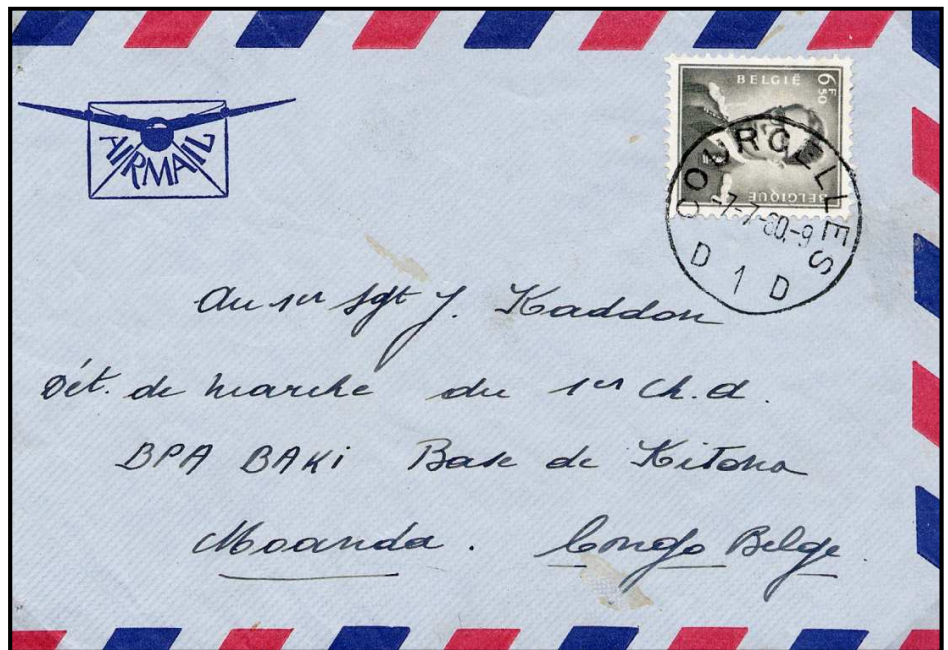 AIRMAIL
BELGIË
6F50
BELGIQUE
COURCELLES
-7-7-60.-9
D 1 D
Au 1er Sgt J. Kaddon
Dét. de Marche du 1er Ch. d.
BPA BAKI Base de Kitona
Moanda. Congo Belge.